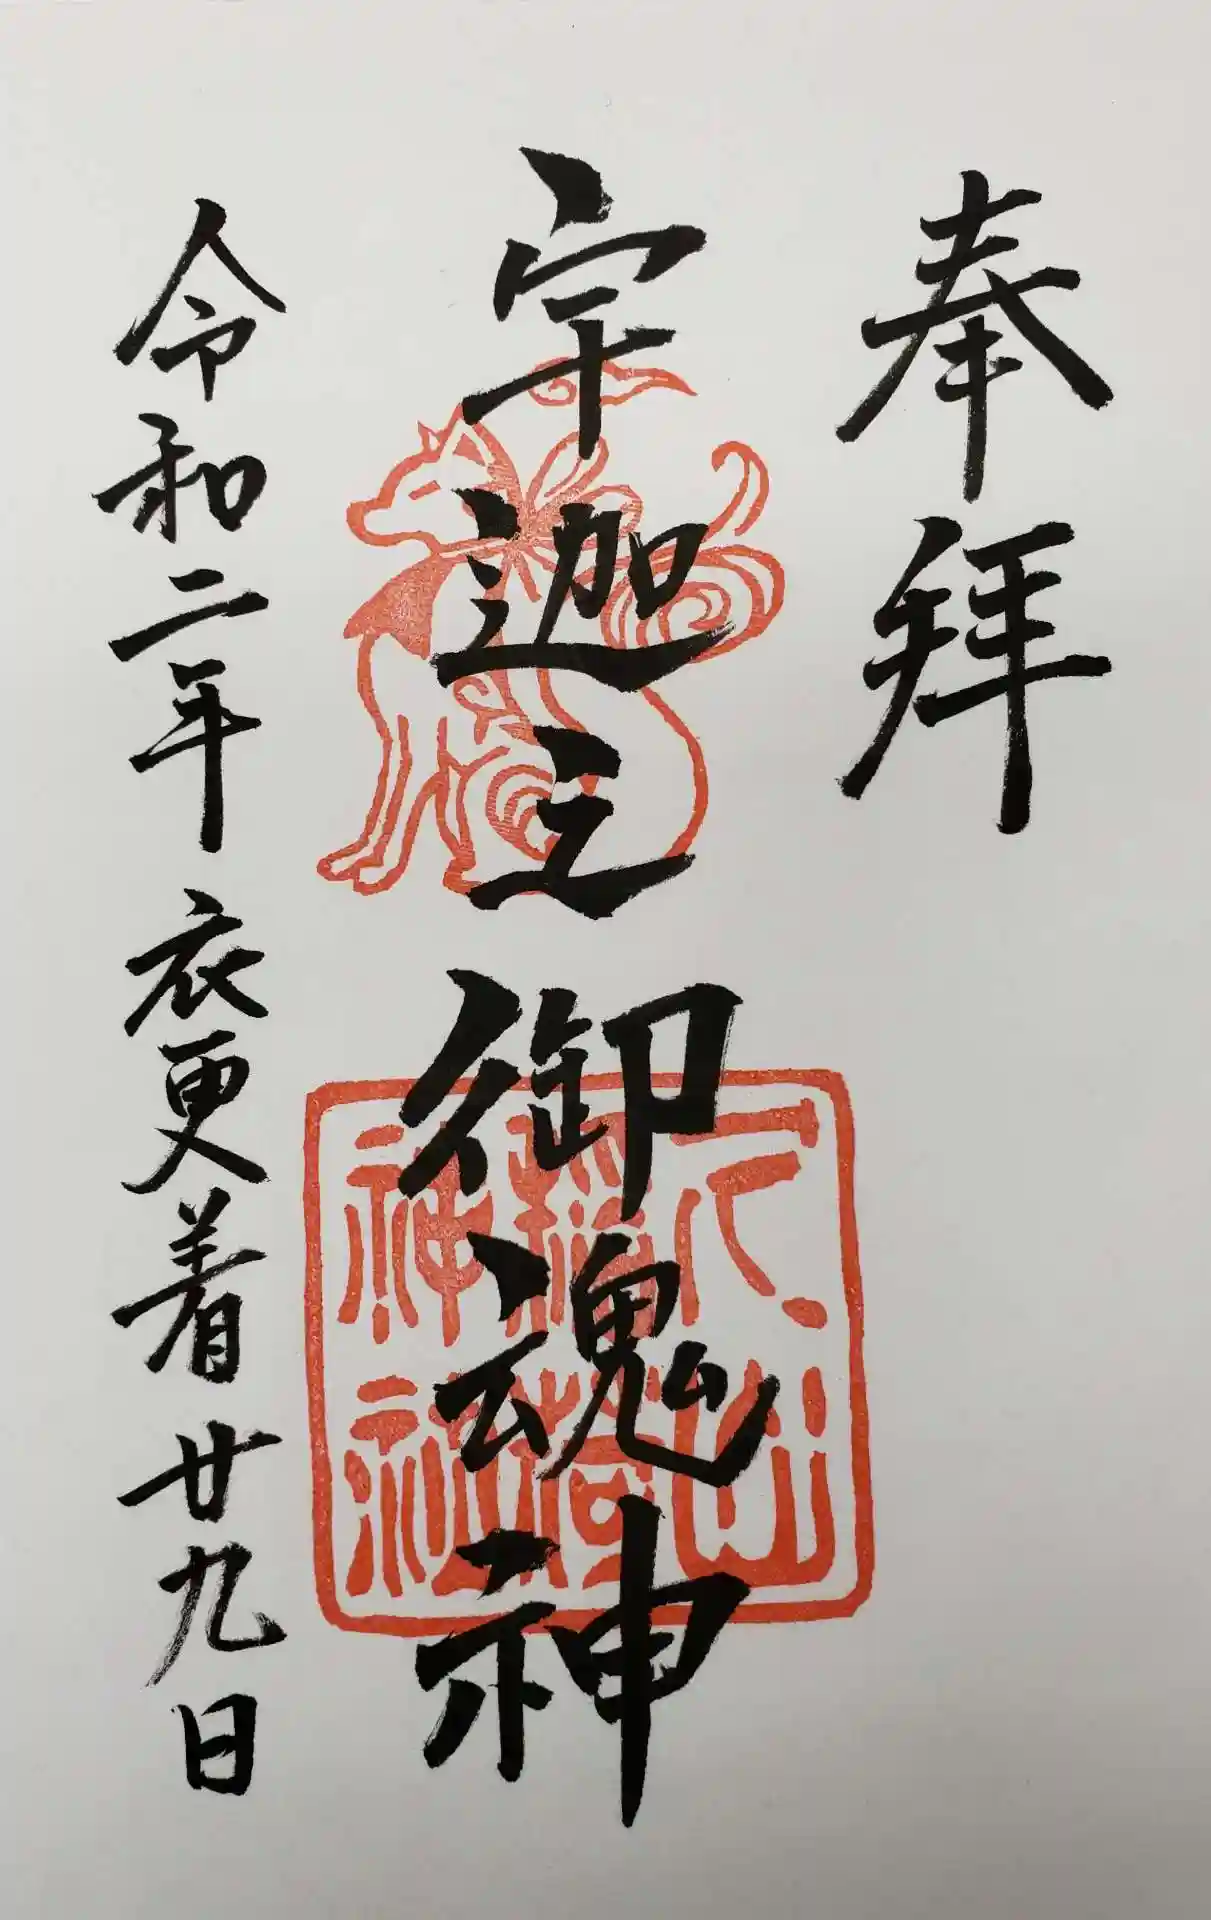 奉拜
宇迦之御魂神
令和二年 衣更着 廿九日
稲荷
神社